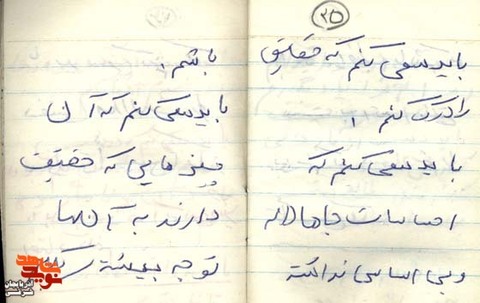 ۲۵
باید سعی کنم که حقایق
را درک کنم.
باید سعی کنم که
احساسات جاهلانه
و بی اساسی نداشته
باشم.
باید سعی کنم که آن
چیزهایی که حقیقت
دارند به آنها
توجه بیشتری
نوید شاهد
آذربایجان شرقی